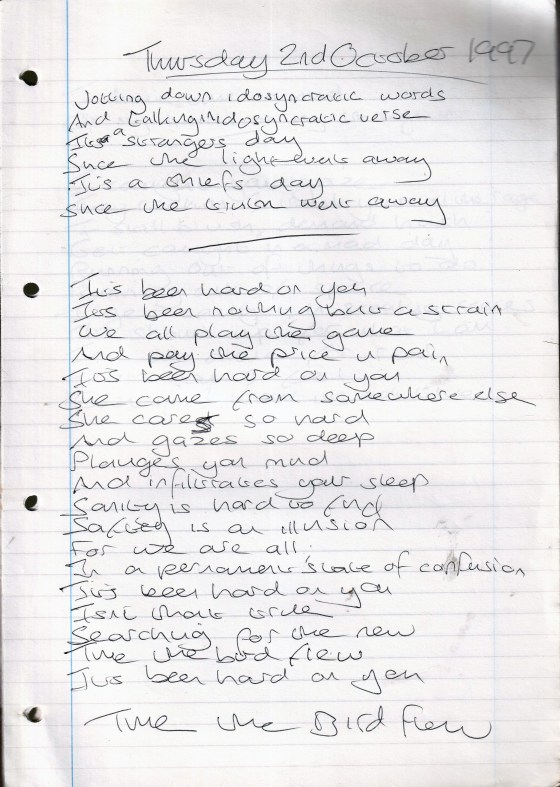 Thursday 2nd October 1997
Jotting down idosyncratic words
And talking in a idosyncratic verse
Its a strangers day
Since the light went away
It's a thiefs day
Since the vision went away
It's been hard on you
It's been nothing but a strain
We all play the game
And pay the price in pain
It's been hard on you
She came from somewhere else
She cares so hard
And gazes so deep
Plunges your mind
And infiltrates your sleep
Sanity is hard to find
Safety is an illusion
For we are all
In a permanent state of confusion
It's been hard on you
Isn't that true
Searching for the new
Time the bird flew
It's been hard on you
Time the Bird flew